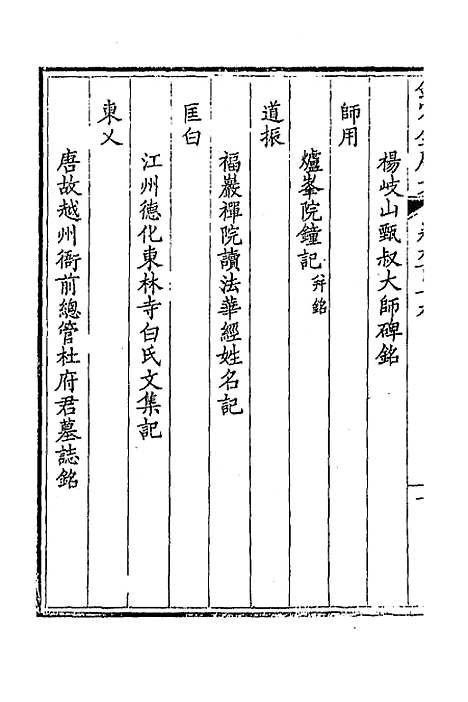 楊岐山甄叔大師碑銘
師用
爐峯院鐘記 并銘
道振
福巖禪院讀法華經姓名記
匡白
江州德化東林寺白氏文集記
東乂
唐故越州衙前總管杜府君墓誌銘